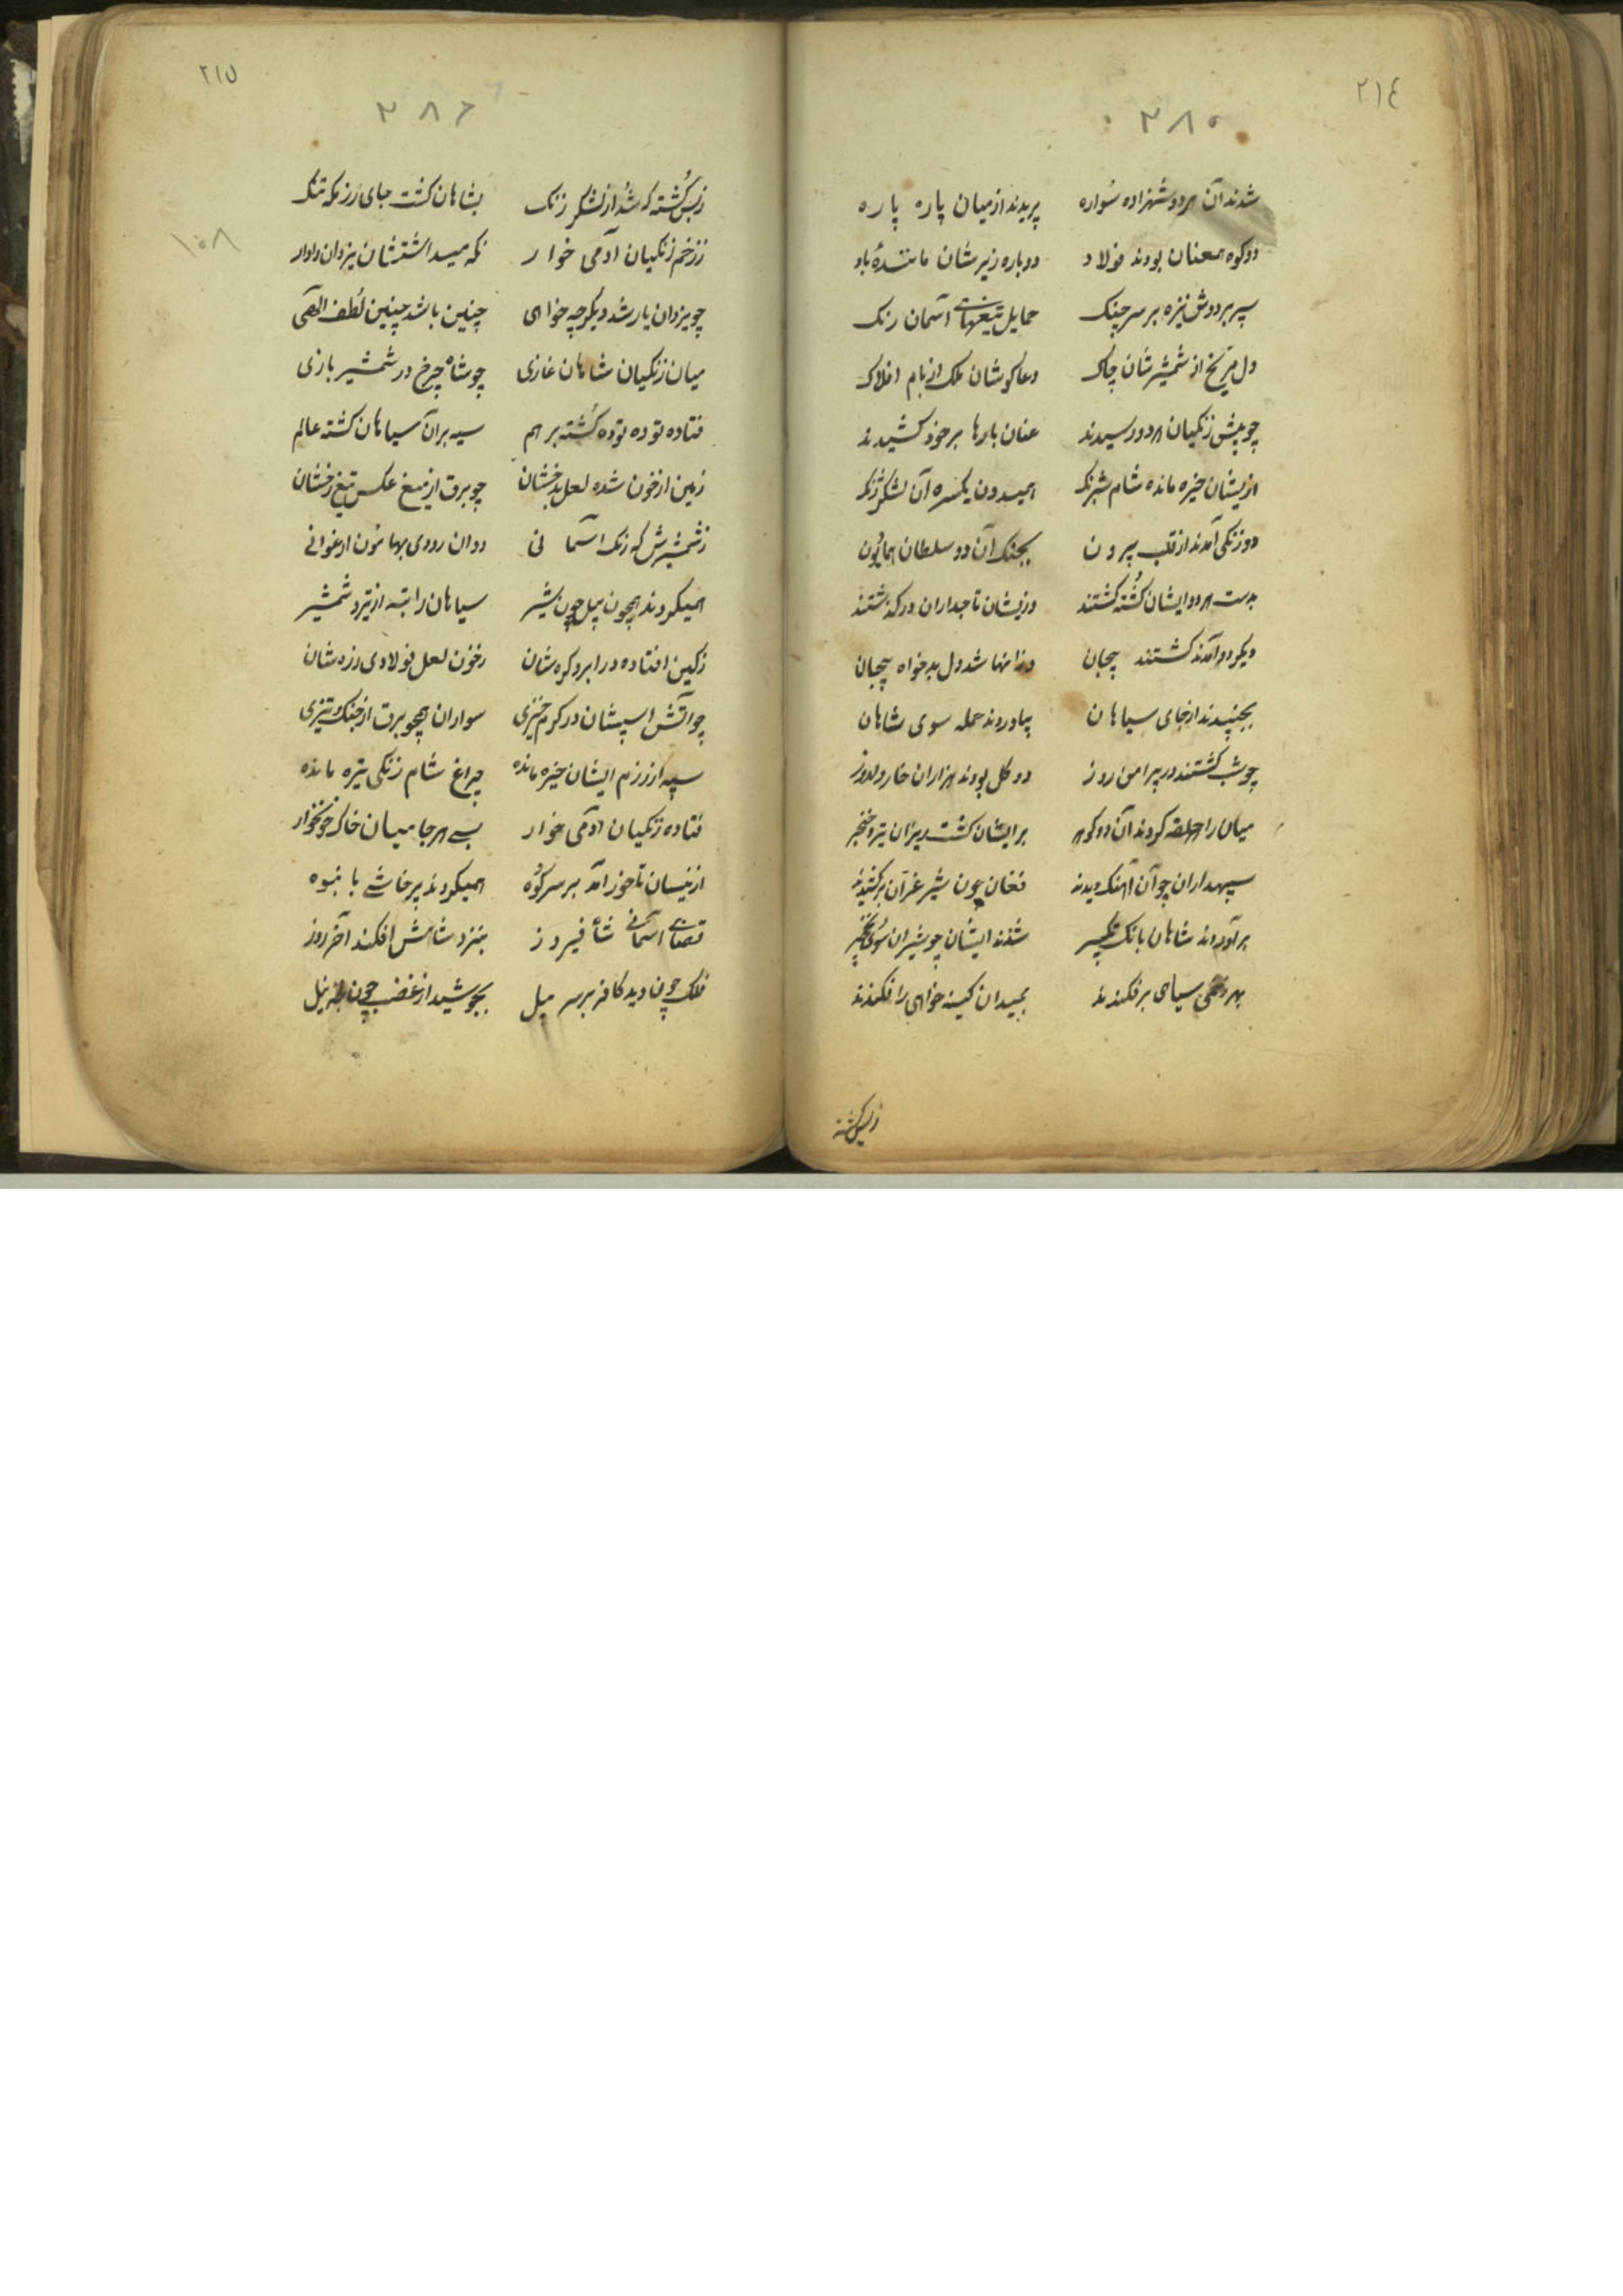 ٢١٤
٣٨٥
شدند آن هر دو شهزاده سواره پریدند از میان پاره پاره
دو کوه همعنان بودند فولاد دو باره زیرشان مانندهٔ باد
سپر بر دوش نیزه بر سر چنک حمایل تیغهای آسمان رنک
دل مریخ از شمشیرشان چاک دعا کوشان ملک از بام افلاک
چو پیش زنکیان هر دو رسیدند عنان بارها بر خود کشیدند
ازیشان خیره مانده شام شبرنک همیدون یکسره آن لشکر زنک
دو زنکی آمدند از قلب بیرون بجنک آن دو سلطان همایون
بدست هر دو ایشان کُشته کشتند وزیشان تاجداران در کذشتند
دیکر دو آمدند کشتند بیجان وزانها شد دل بدخواه پیچان
بجنبیدند از جای سیاهان بیاوردند حمله سوی شاهان
چو شب کشتند در پیرامن روز دو کل بودند هزاران خار دلدوز
میان را حلقه کردند آن دو کوهر بر ایشان کشت ریزان تیر و خنجر
سپهداران چو آن آهنک دیدند فغان چون شیر غرّان برکشیدند
برآوردند شاهان بانک تکبیر شدند ایشان چو شیران سوی نخجیر
بهر زخمی سیاهی برفکندند بمیدان کینه خواهی را فکندند
زبس کشته
٢١٥
٣٨٦
زبس کُشته که شد از لشکر زنک بشاهان کشت جای رزمکه تنک
ززخم زنکیان آدمی خوار نکه میداشتشان یزدان دادار
چو یزدان یار شد دیکر چه خواهی چنین باشد چنین لُطف الٓهی
١٠٨
میان زنکیان شاهان غازی چو شاه چرخ در شمشیر بازی
فتاده توده توده کُشته بر هم سیه بر آن سیاهان کشته عالم
زمین از خون شده لعل بدخشان چو برق از میغ عکس تیغ رخشان
زشمشیرش که زنک آسمانی روان رودی بهامون ارغوانی
همیکردند همچون پیل چون شیر سیاهان را تبه از تیر و شمشیر
زکین افتاده در ابرو کره شان زخون لعل فولادی زره شان
چو آتش اسپشان در کرم خیزی سواران همچو برق از جنک و تیزی
سپه از رزم ایشان خیره مانده چراغ شام زنکی تیره مانده
فتاده زنکیان آدمی خوار بسے هر جا میان خاک خونخوار
از نیسان تا خور آمد بر سر کوه همیکردند پرخاشے با نبوه
قضاے آسمانے شاه فیروز بنزد شاهش افکند آخر روز
فلک چون دید کافر بر سر میل بجوشید از غضب چون لجه نیل